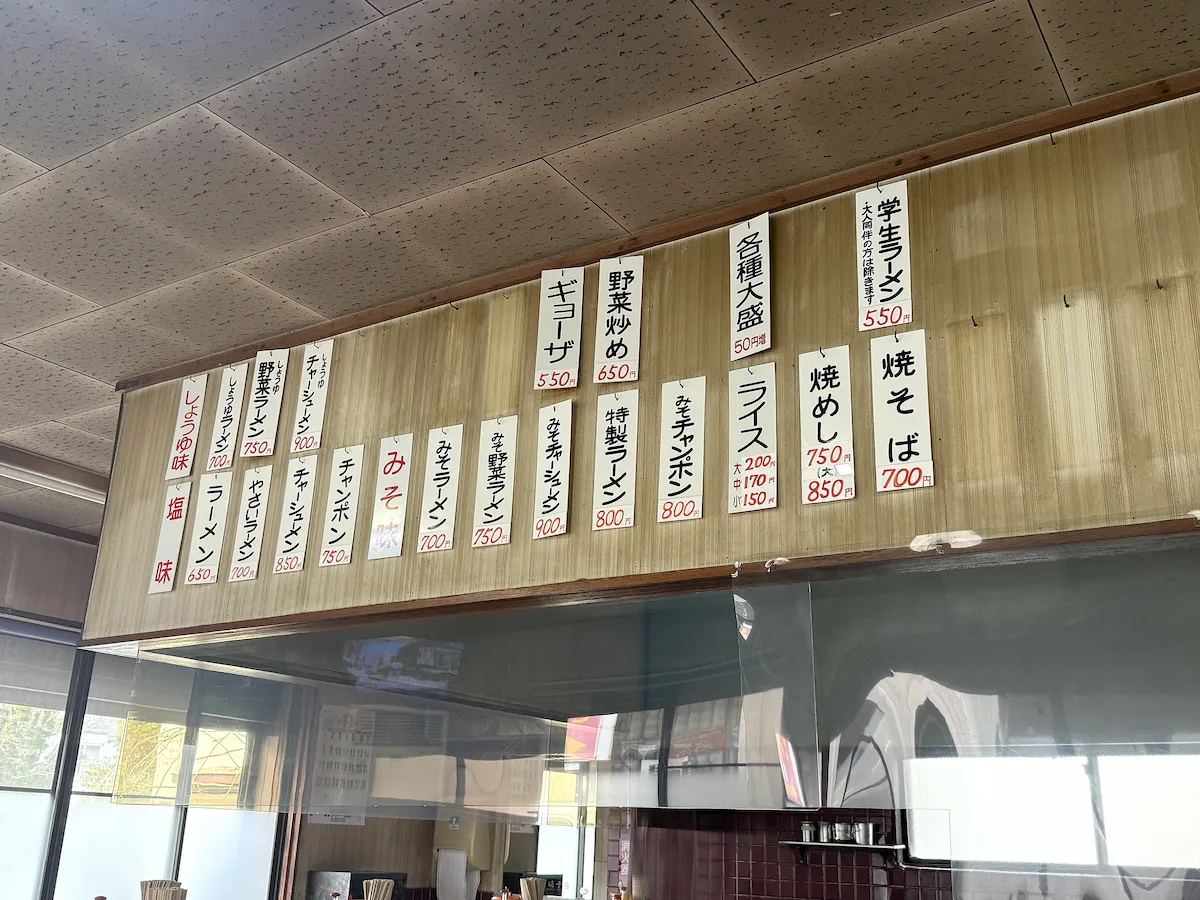 しょうゆ味
しょうゆラーメン
700円
しょうゆ
野菜ラーメン
750円
しょうゆ
チャーシューメン
900円
ギョーザ
550円
野菜炒め
650円
各種大盛
50円増
学生ラーメン
・大人同伴の方は除きます
550円
塩味
ラーメン
650円
やさいラーメン
700円
チャーシューメン
850円
チャンポン
750円
みそ味
みそラーメン
700円
みそ
野菜ラーメン
750円
みそチャーシューメン
900円
特製ラーメン
800円
みそチャンポン
800円
ライス
大 200円
中 170円
小 150円
焼めし
750円
(大)
850円
焼そば
700円
消火